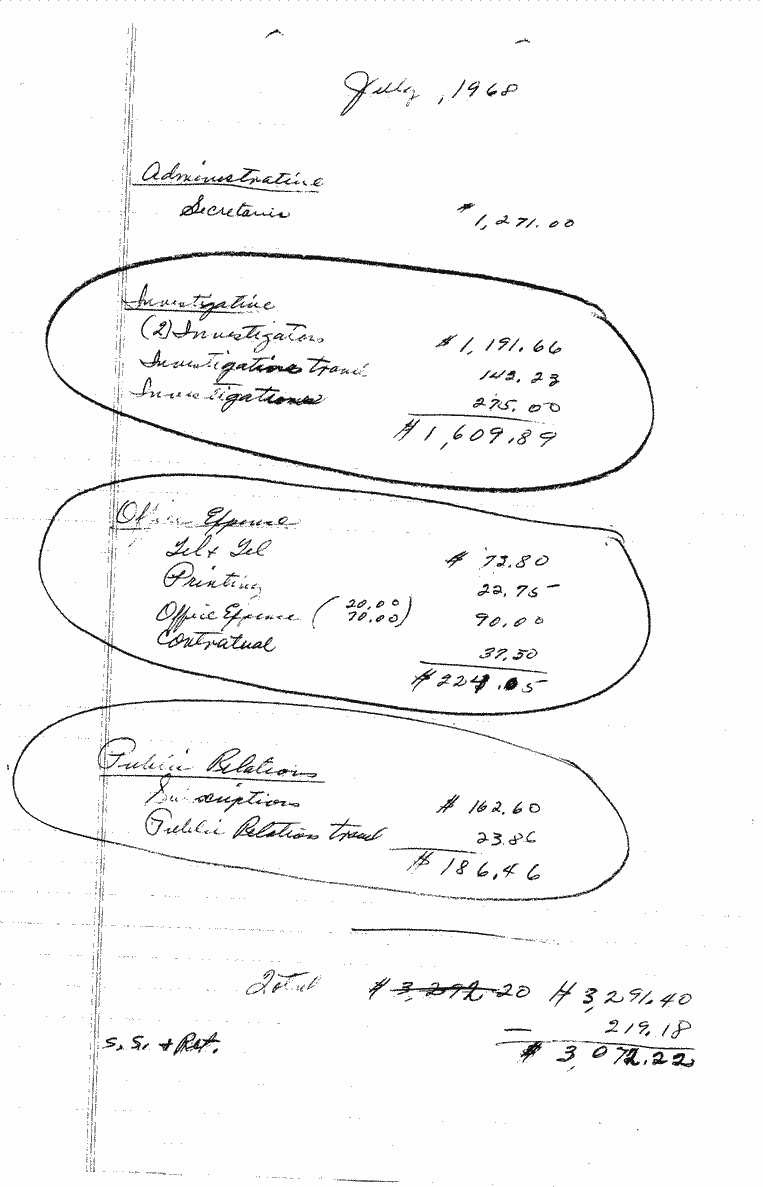 July, 1968
Administrative
Secretaries $1,271.00
Investigative
(2) Investigators $1,191.66
Investigations travel 142.23
Investigations 275.00
$1,609.89
Office Expense
Tel + Tel $73.80
Printing 22.75
Office Expense (20.00 70.00) 90.00
Contratual 37.50
$224.05
Public Relations
Subscriptions $162.60
Public Relation travel 23.86
$186.46
Total $3,292.20 $3,291.40
— 219.18
S.S. + Ret. $3,072.22